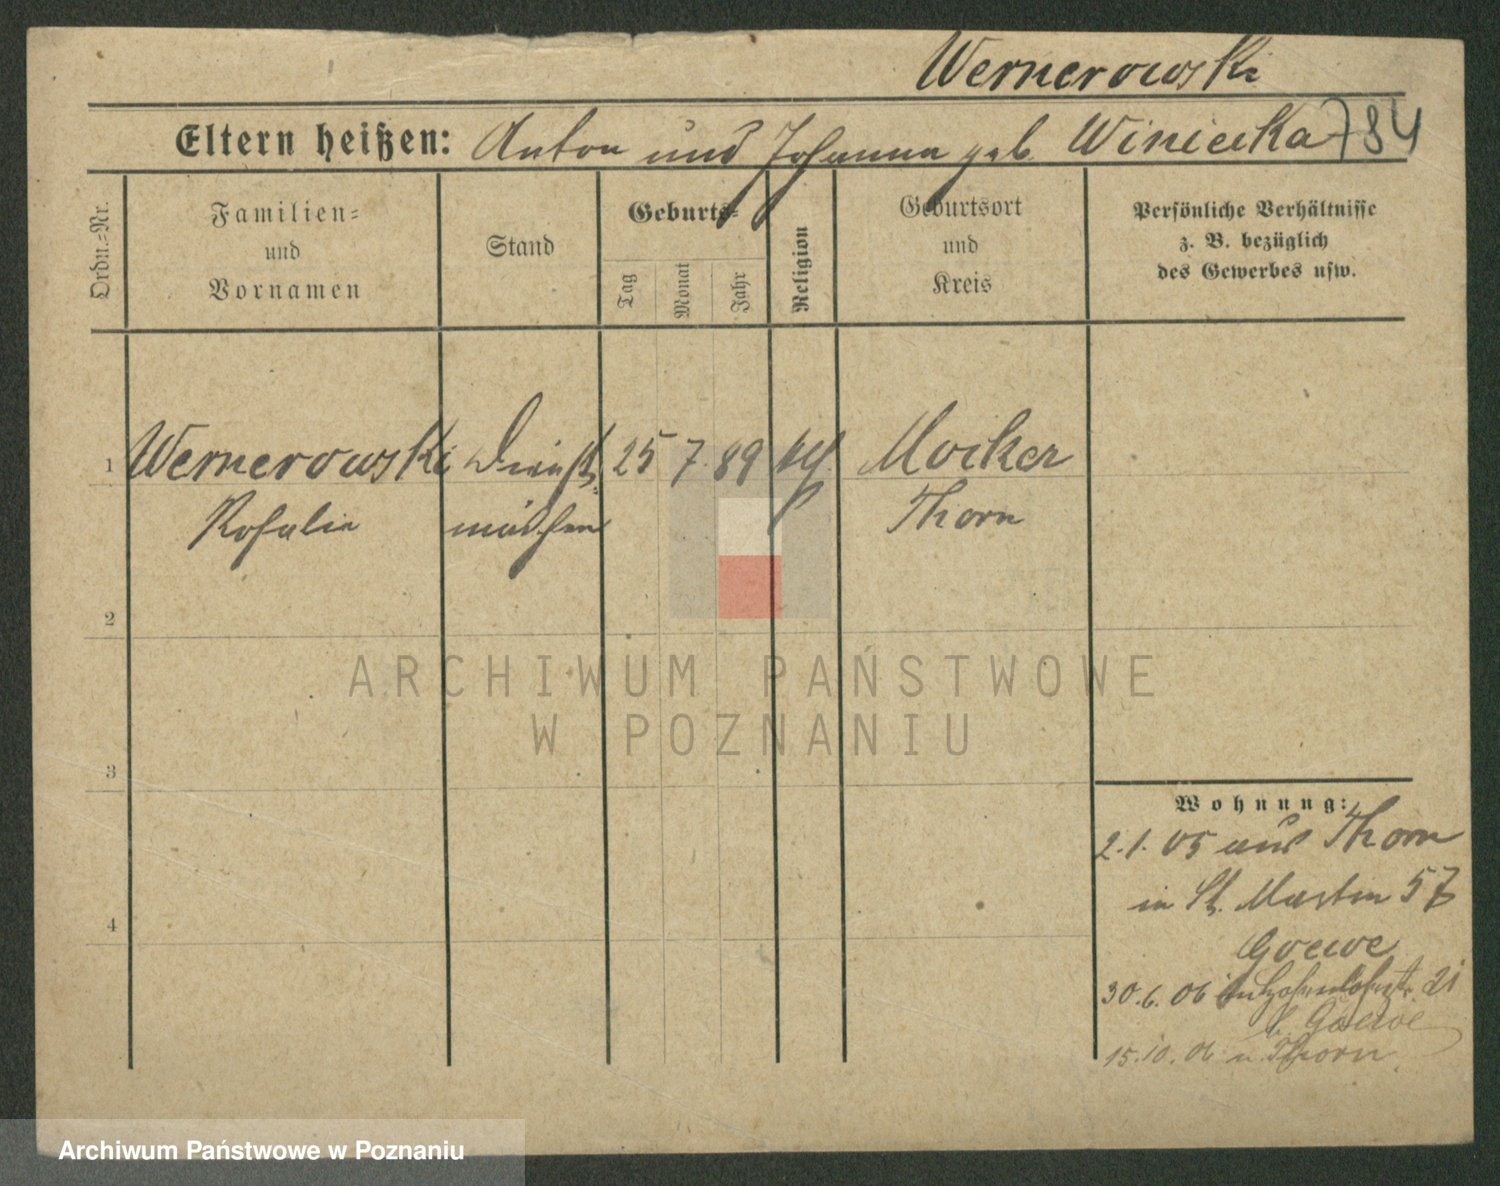 Wernerowski
Eltern heißen: Anton und Johanna geb. Winiecka 784
Ordn.-Nr.
Familien-
und
Vornamen
Stand
Geburts-
Tag
Monat
Jahr
Religion
Geburtsort
und
Kreis
Persönliche Verhältnisse
z. B. bezüglich
des Gewerbes usw.
1 Wernerowski Dienst- 25 7. 89 kth. Mocker
Rosalie mädchen Thorn
2
3
4
Wohnung:
2.1.05 aus Thorn
in St. Martin 57
Goewe
30.6.06 in Hohenlohestr. 21
b. Goewe
15.10.06 n. Thorn
ARCHIWUM PAŃSTWOWE
W POZNANIU
Archiwum Państwowe w Poznaniu